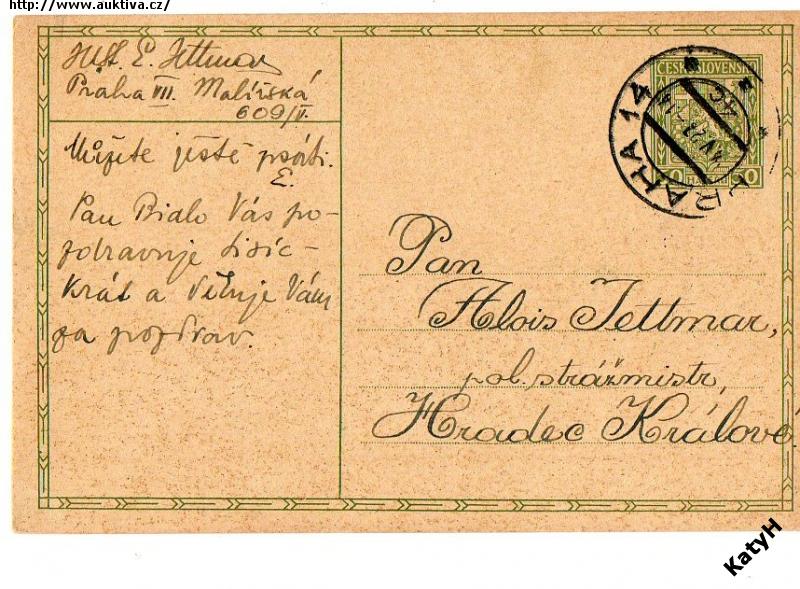 http://www.auktiva.cz/
E. Jettmar
Praha VII. Malířská
609/V.
Můžete ještě psáti.
E.
Pan Bidlo Vás po-
zdravuje tisíc-
krát a děkuje Vám
za pozdrav.
ČESKOSLOVENSKO
50 HAL 50
PRAHA 14
4c
Pan
Alois Jettmar,
pol. strážmistr,
Hradec Králové
KatyH